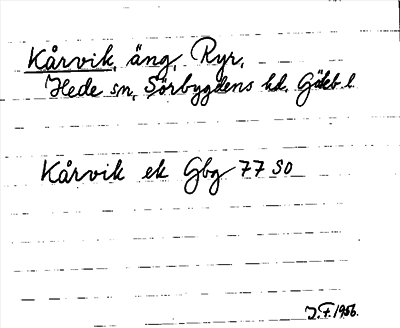 Kårvik, äng, Ryr,
Hede sn, Sörbygdens hd. Göteb. l.
Kårvik ek Gbg 77 SO
J.F. 1956.